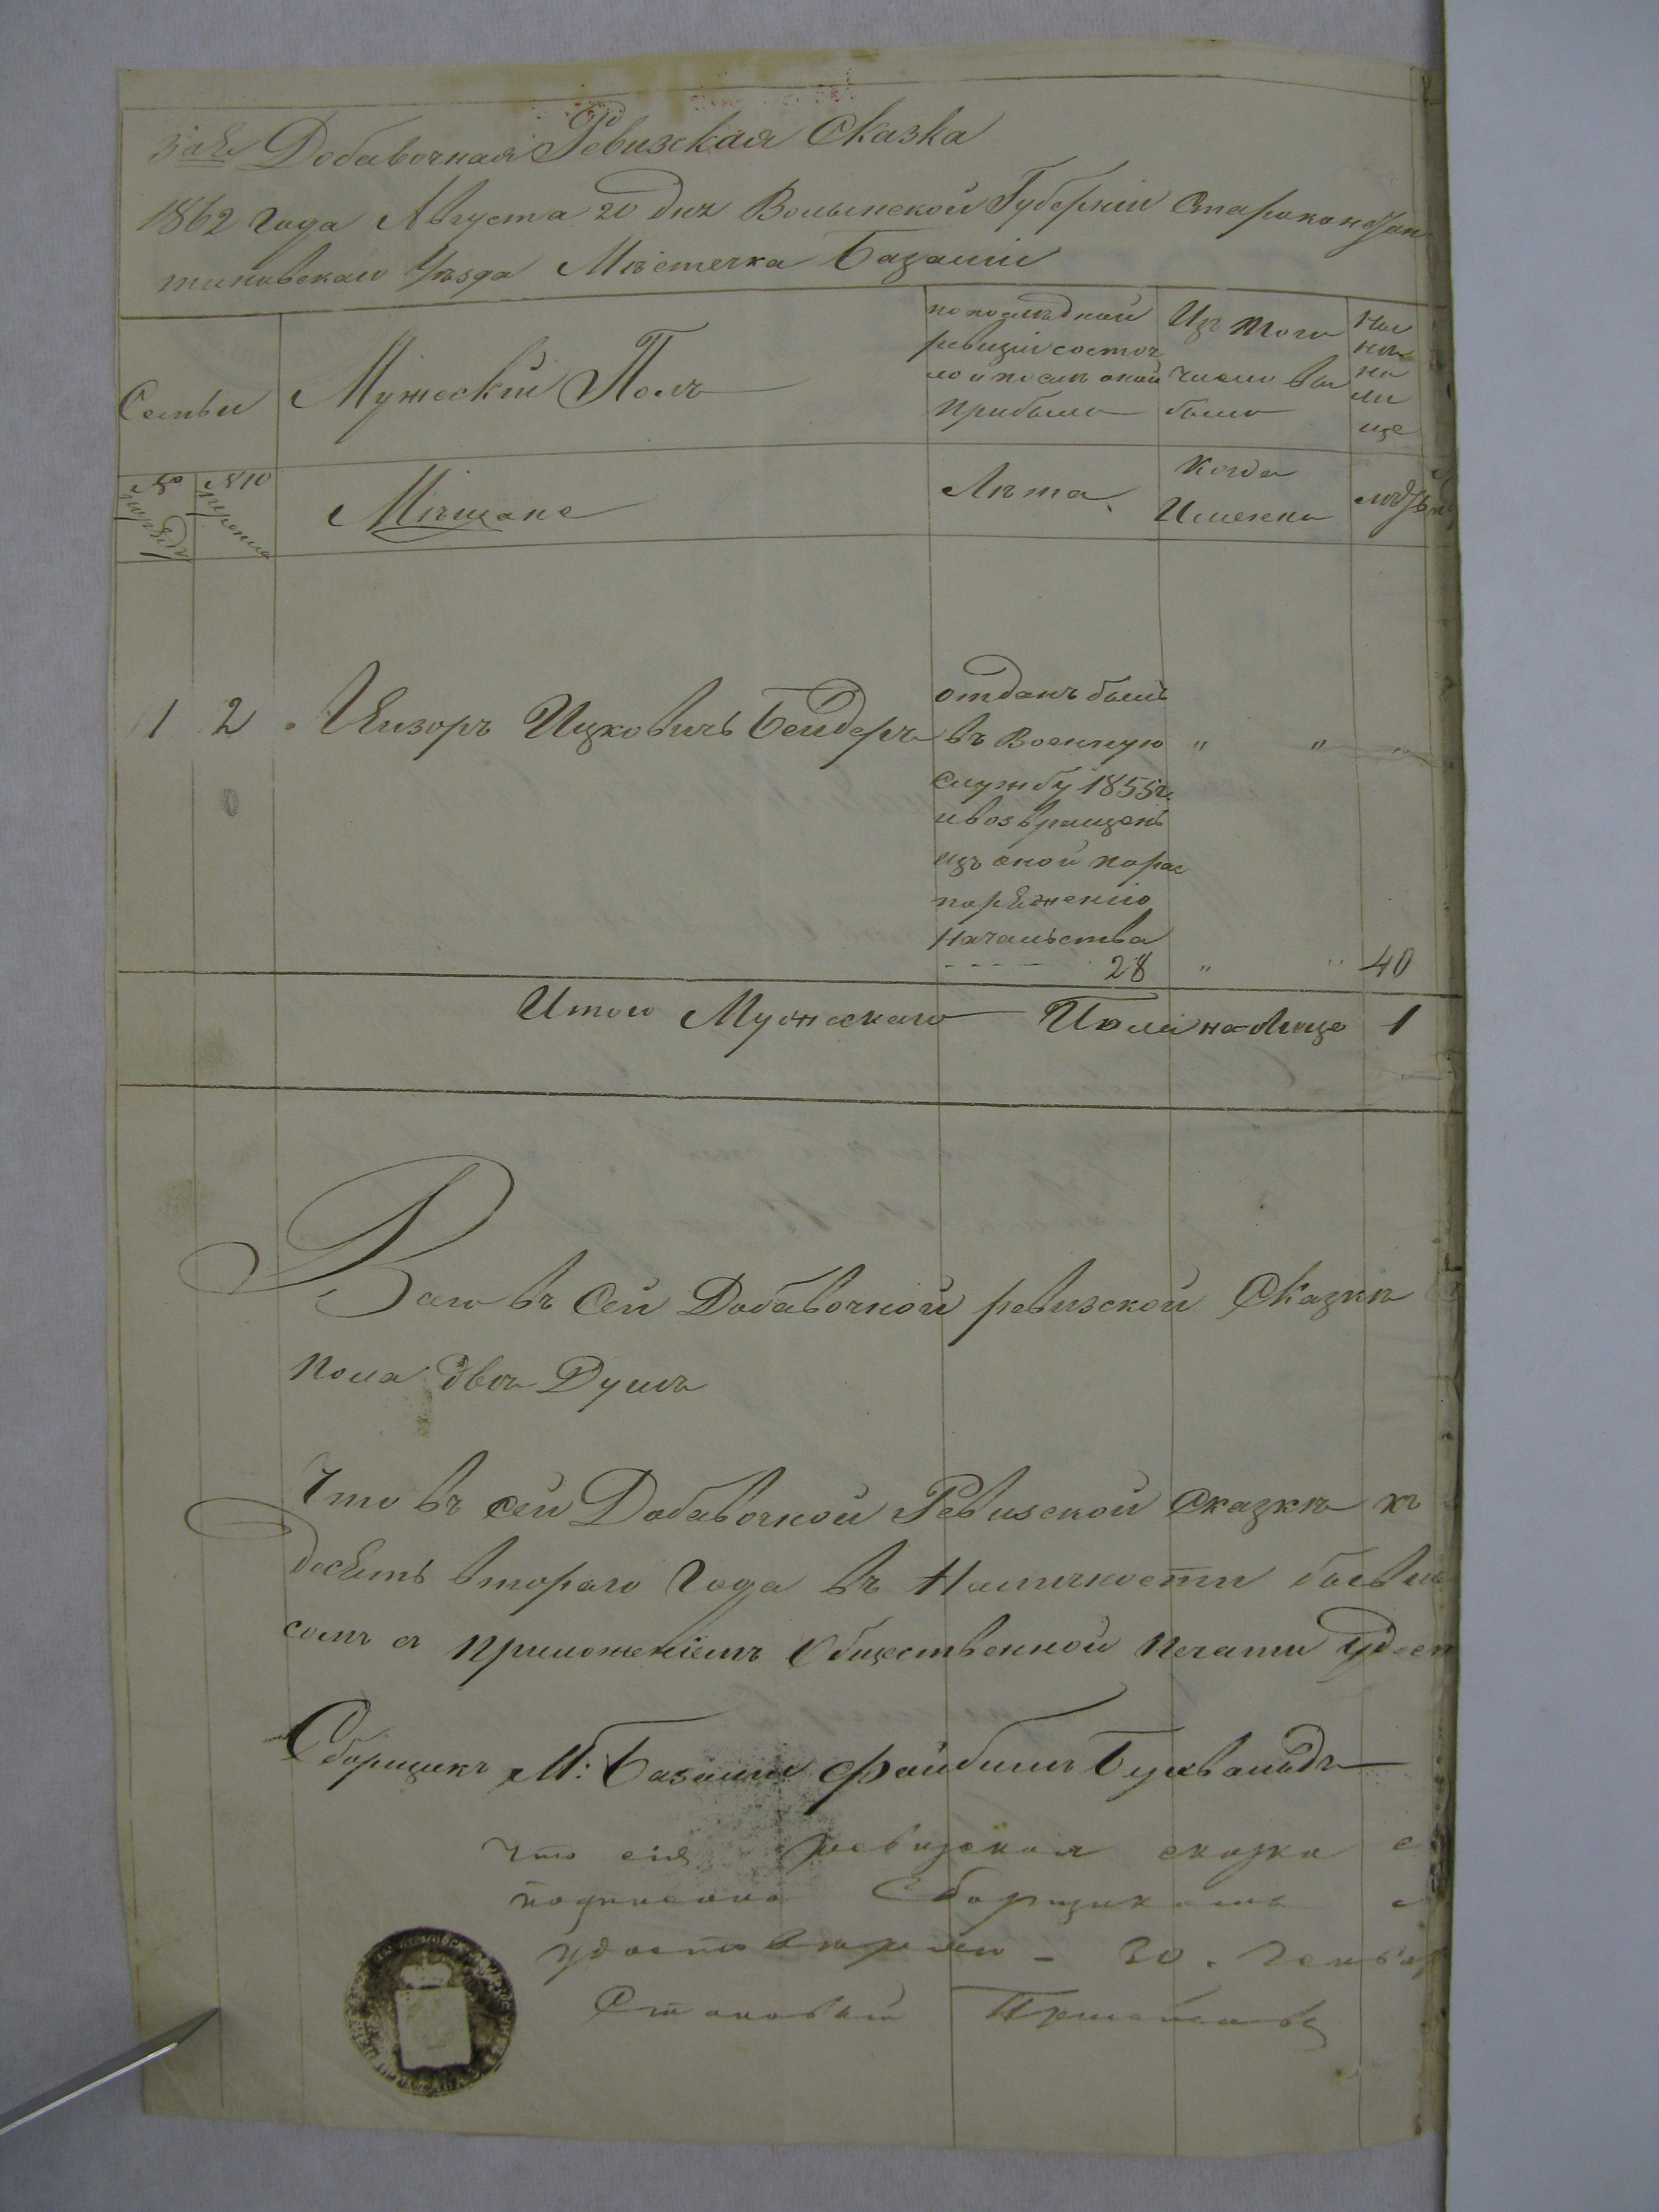 Добавочная Ревизская Сказка
1862 года Августа 20 дня Волынской Губерніи Староконстан
тиновскаго Уѣзда Мѣстечка Базаліи
Семьи
Мужескій Полъ
по послѣдней
ревизіи состоя
ло и послѣ оной
прибыло
Изъ того
числа вы
было
На
ли
це
№ 10
Мѣщане
Лѣта
Когда
Именно
1 2 Лейзоръ Ицковичъ Бендеръ
отданъ былъ
въ Военную " " "
службу 1855 г.
и возвращенъ
изъ оной по рас
поряженію
Начальства
28 " " 40
Итого Мужескаго Пола на Лице 1
Всего въ сей Добавочной ревизской Сказкѣ
пола двѣ Душъ
Что въ сей Добавочной Ревизской Сказкѣ
десять втораго Года въ Наличности
съ приложеніемъ Общественной печати удост
Сборщикъ М: Базаліи Файбишъ
Что сія ревизская сказка с
подписана Сборщикомъ
удостовѣряю - 30.
Становый Приставъ